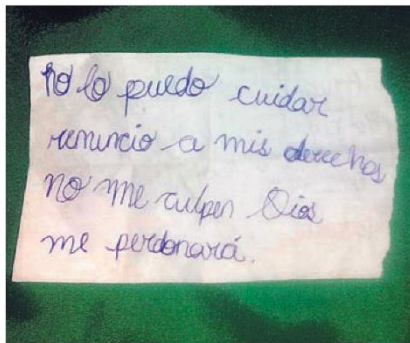 no lo puedo cuidar
renuncio a mis derechos
no me culpen Dios
me perdonará.